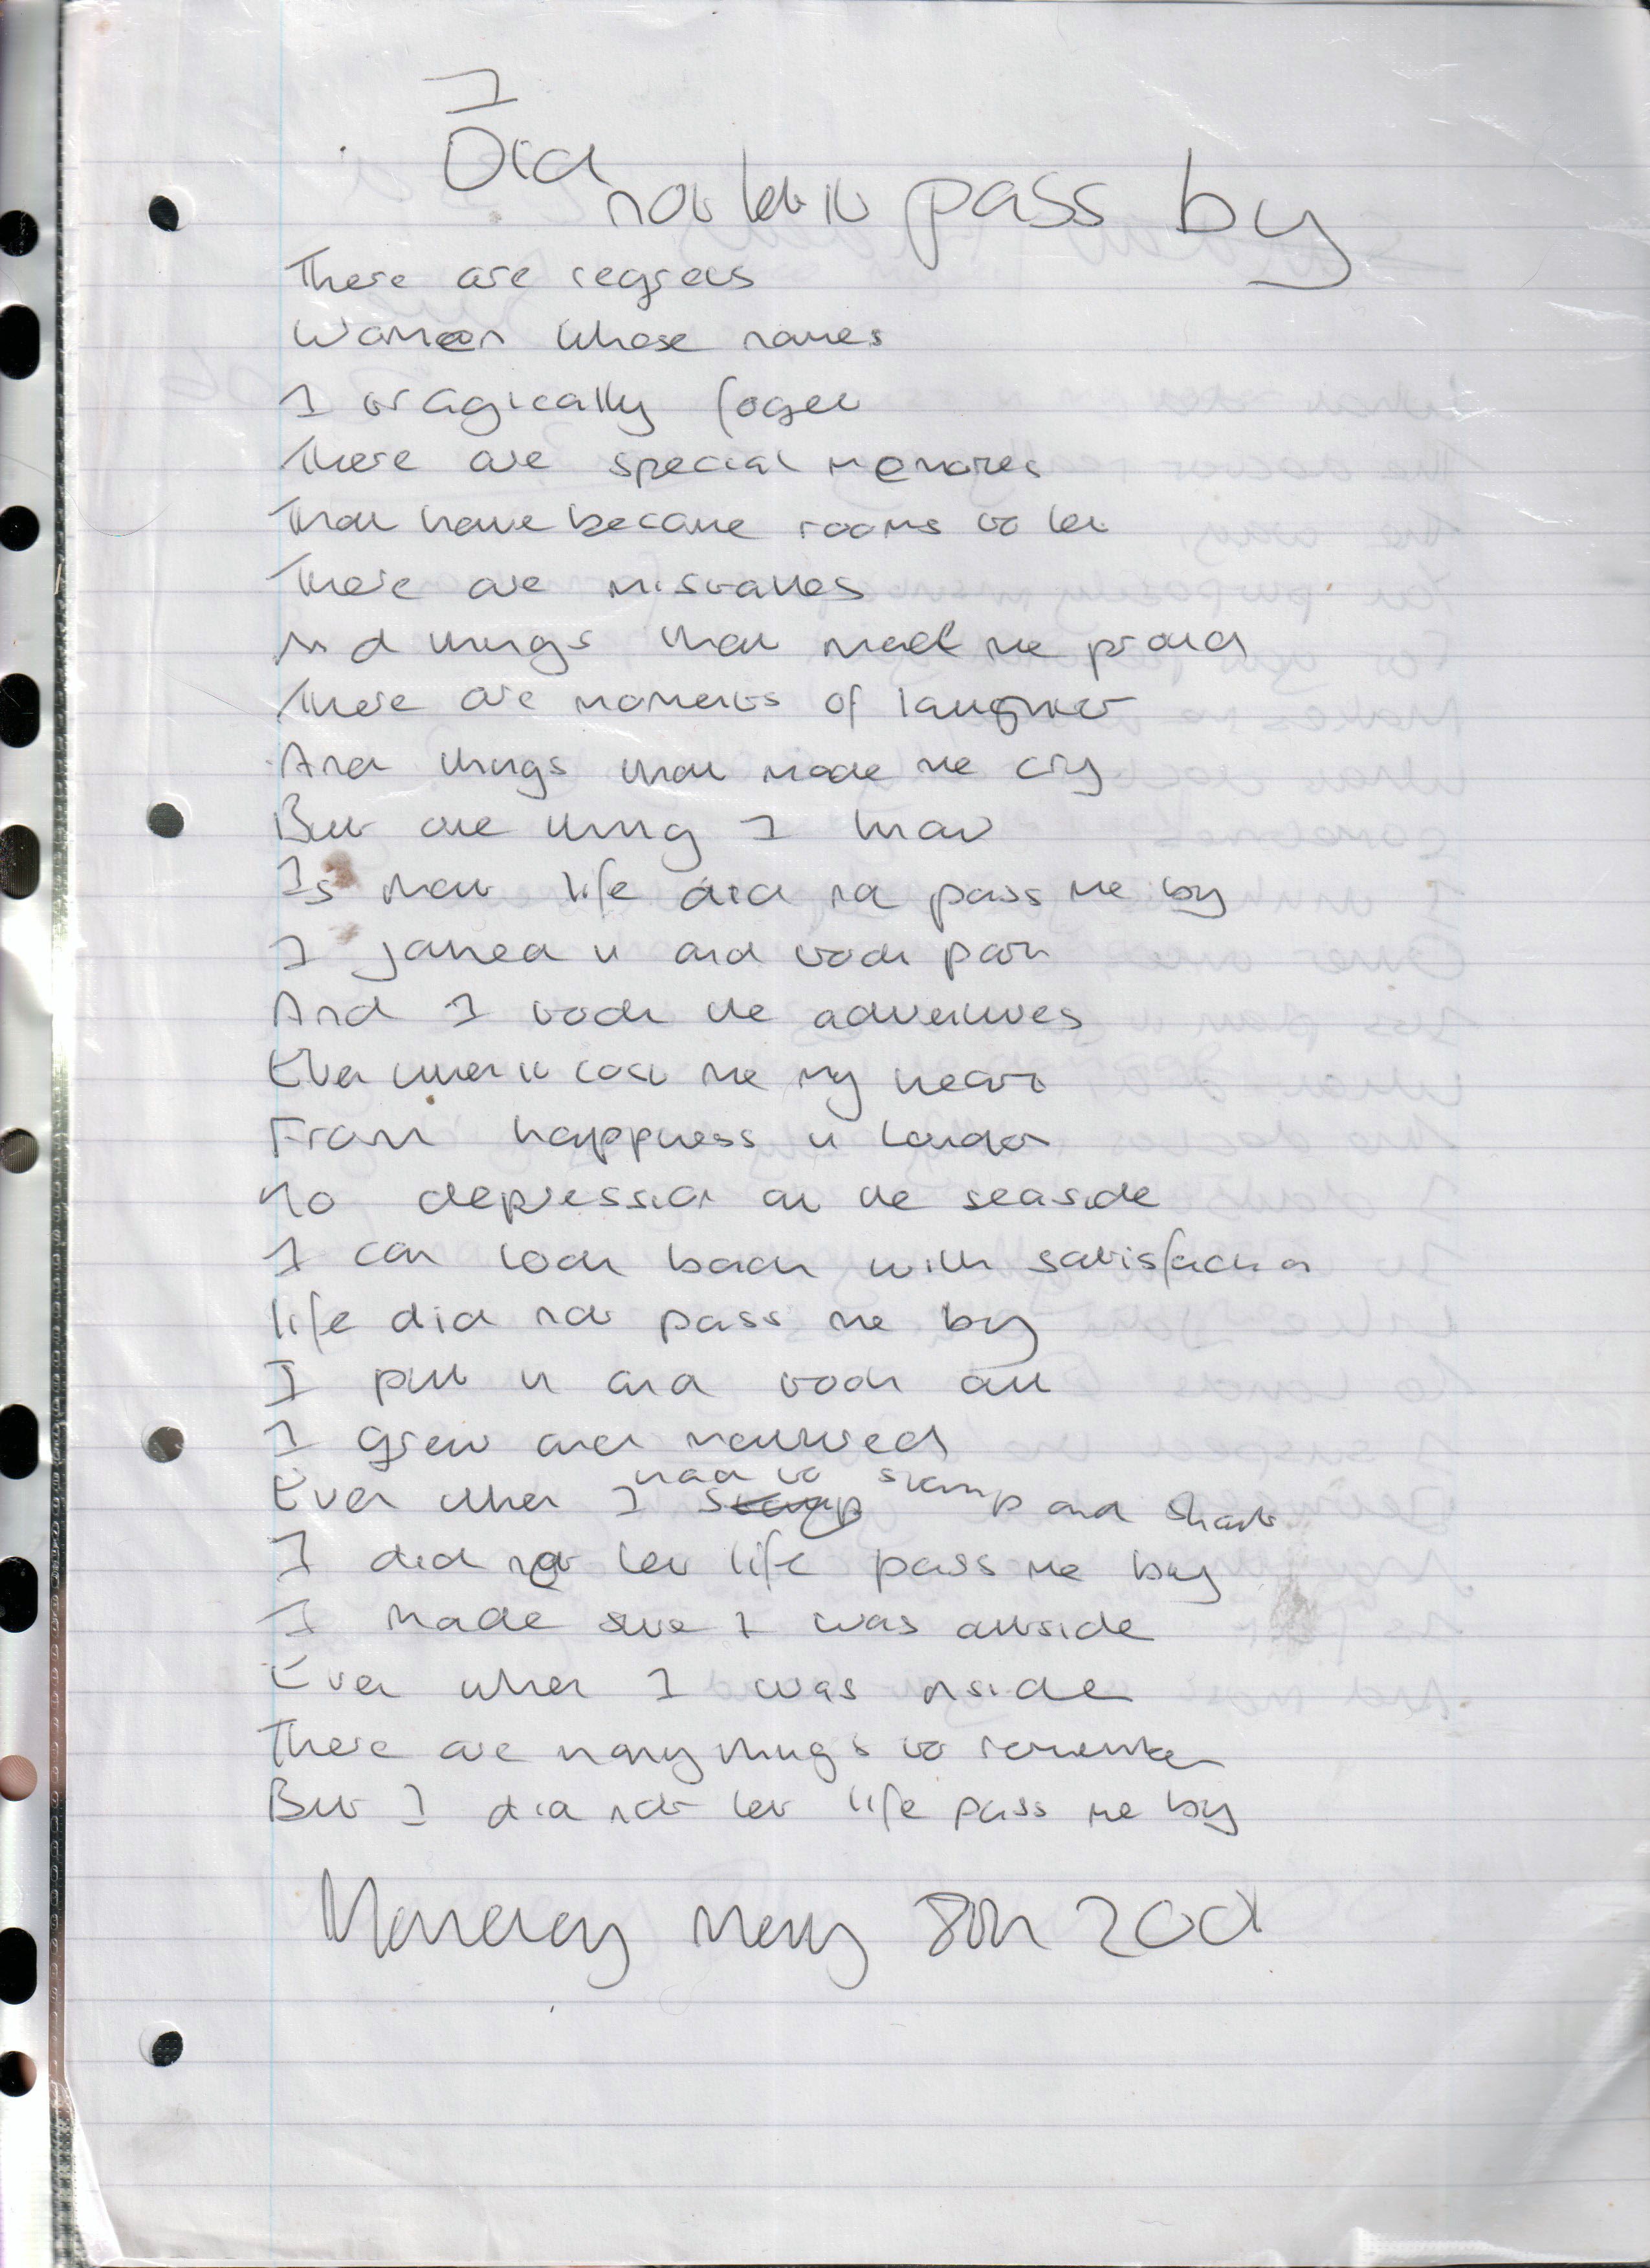 I
Did
not let it pass by
There are regrets
Women whose names
I tragically foget
There are special memories
That have become rooms to let
There are mistakes
And things that made me proud
There are moments of laughter
And things that made me cry
But one thing I know
Is that life did not pass me by
I joined in and took part
And I took the adventures
Even when it cost me my heart
From happpiness in London
To depression at the seaside
I can look back with satisfaction
life did not pass me by
I put in and took out
I grew and matured
Even when I had to stomp and shout
I did not let life pass me by
I made sure I was outside
Even when I was inside
There are many things to remember
But I did not let life pass me by
Monday May 8th 2001